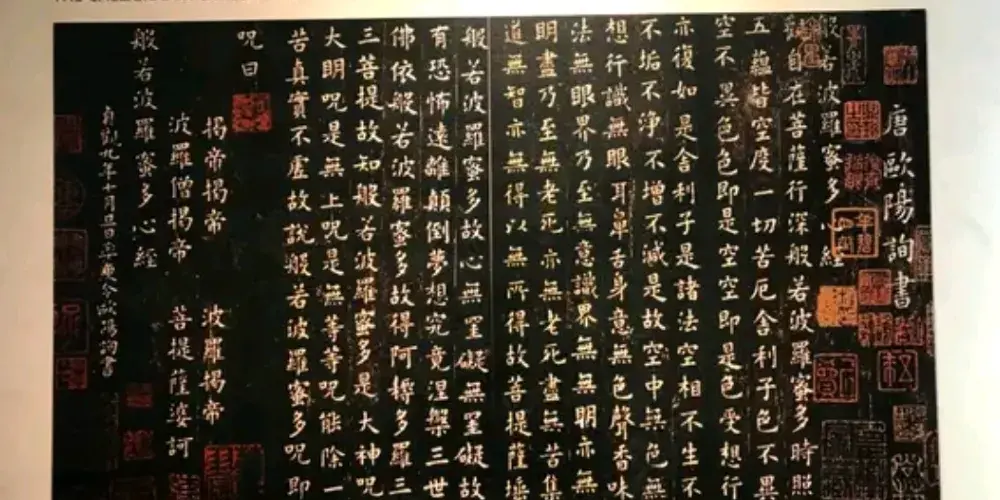 唐歐陽詢書
般若波羅蜜多心經
觀自在菩薩行深般若波羅蜜多時照
五蘊皆空度一切苦厄舍利子色不異
空不異色色即是空空即是色受想行
亦復如是舍利子是諸法空相不生不
不垢不淨不增不減是故空中無色無
想行識無眼耳鼻舌身意無色聲香味
法無眼界乃至無意識界無無明亦無
明盡乃至無老死亦無老死盡無苦集
道無智亦無得以無所得故菩提薩埵
般若波羅蜜多故心無罣礙無罣礙故
有恐怖遠離顛倒夢想究竟涅槃三世
佛依般若波羅蜜多故得阿耨多羅三
三菩提故知般若波羅蜜多是大神咒
大明咒是無上咒是無等等咒能除一
苦真實不虛故說般若波羅蜜多咒即
咒曰
揭帝揭帝 波羅揭帝
波羅僧揭帝 菩提薩婆訶
般若波羅蜜多心經
貞觀九年十月旦日率更令歐陽詢書